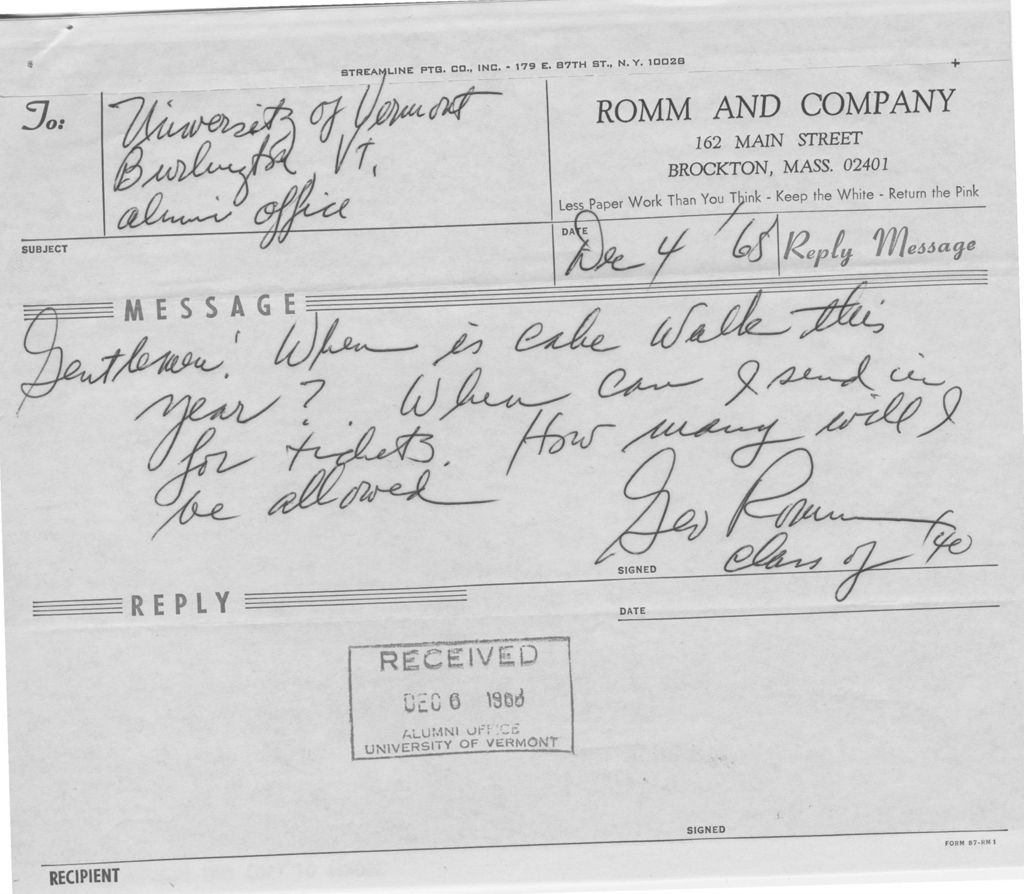 STREAMLINE PTG. CO., INC. - 179 E. 87TH ST., N. Y. 10028
To:
University of Vermont
Burlington, VT.
alumni office
ROMM AND COMPANY
162 MAIN STREET
BROCKTON, MASS. 02401
Less Paper Work Than You Think - Keep the White - Return the Pink
SUBJECT
DATE
Dec 4 '68
Reply Message
MESSAGE
Gentlemen! When is cake walk this
year? When can I send in
for tickets. How many will I
be allowed
Geo Romm
class of '40
SIGNED
REPLY
DATE
RECEIVED
DEC 6 1968
ALUMNI OFFICE
UNIVERSITY OF VERMONT
SIGNED
FORM 87-RM1
RECIPIENT